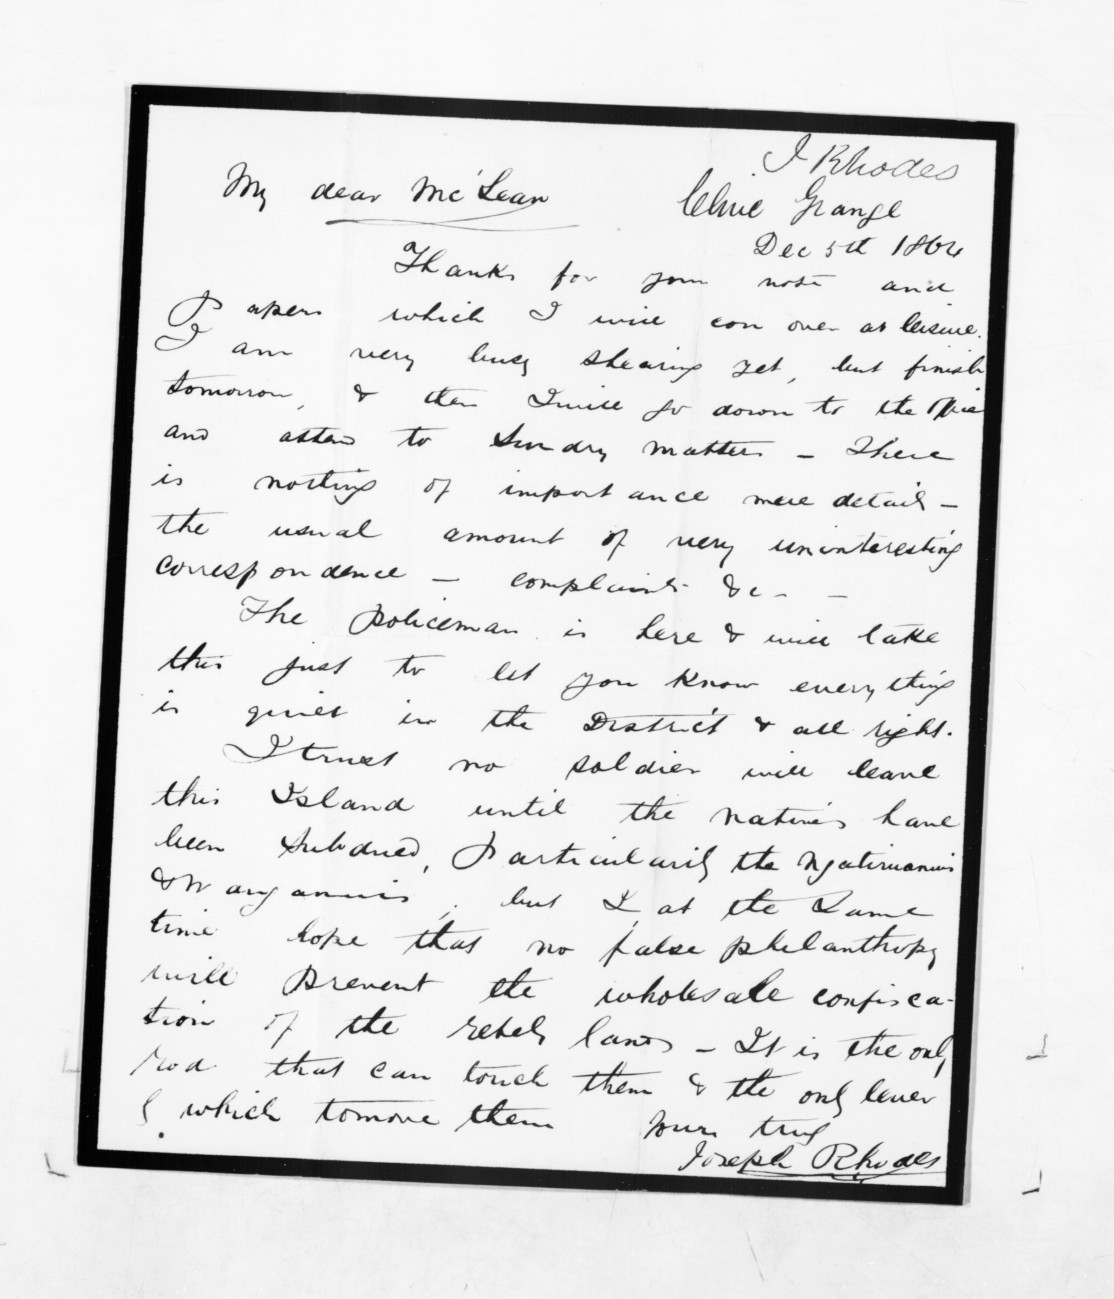 J Rhodes
My dear McLean
Clive Grange
Dec 5th 1864
Thanks for your note and
Papers which I will con over at leisure.
I am very busy shearing yet, but finish
tomorrow, & then I will go down to the Office
and attend to Sundry matters – There
is nothing of importance mere detail –
the usual amount of very uninteresting
correspondence – complaints &c – –
The Policeman is here & will take
this just to let you know everything
is quiet in the District & all right.
I trust no soldier will leave
this Island until the natives have
been subdued, Particularily the Ngatiruanuis
& Wanganuis, but I, at the Same
time hope that no false philanthropy
will prevent the wholesale confisca-
tion of the rebels lands – It is the only
rod that can touch them & the only lever
by which to move them
Yours truly
Joseph Rhodes